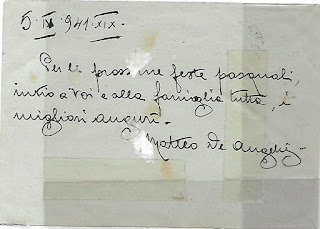 5 IV 941. XIX.
Per le prossime feste pasquali,
invio a Voi e alla famiglia tutta, i
migliori auguri.
Matteo De Angelis